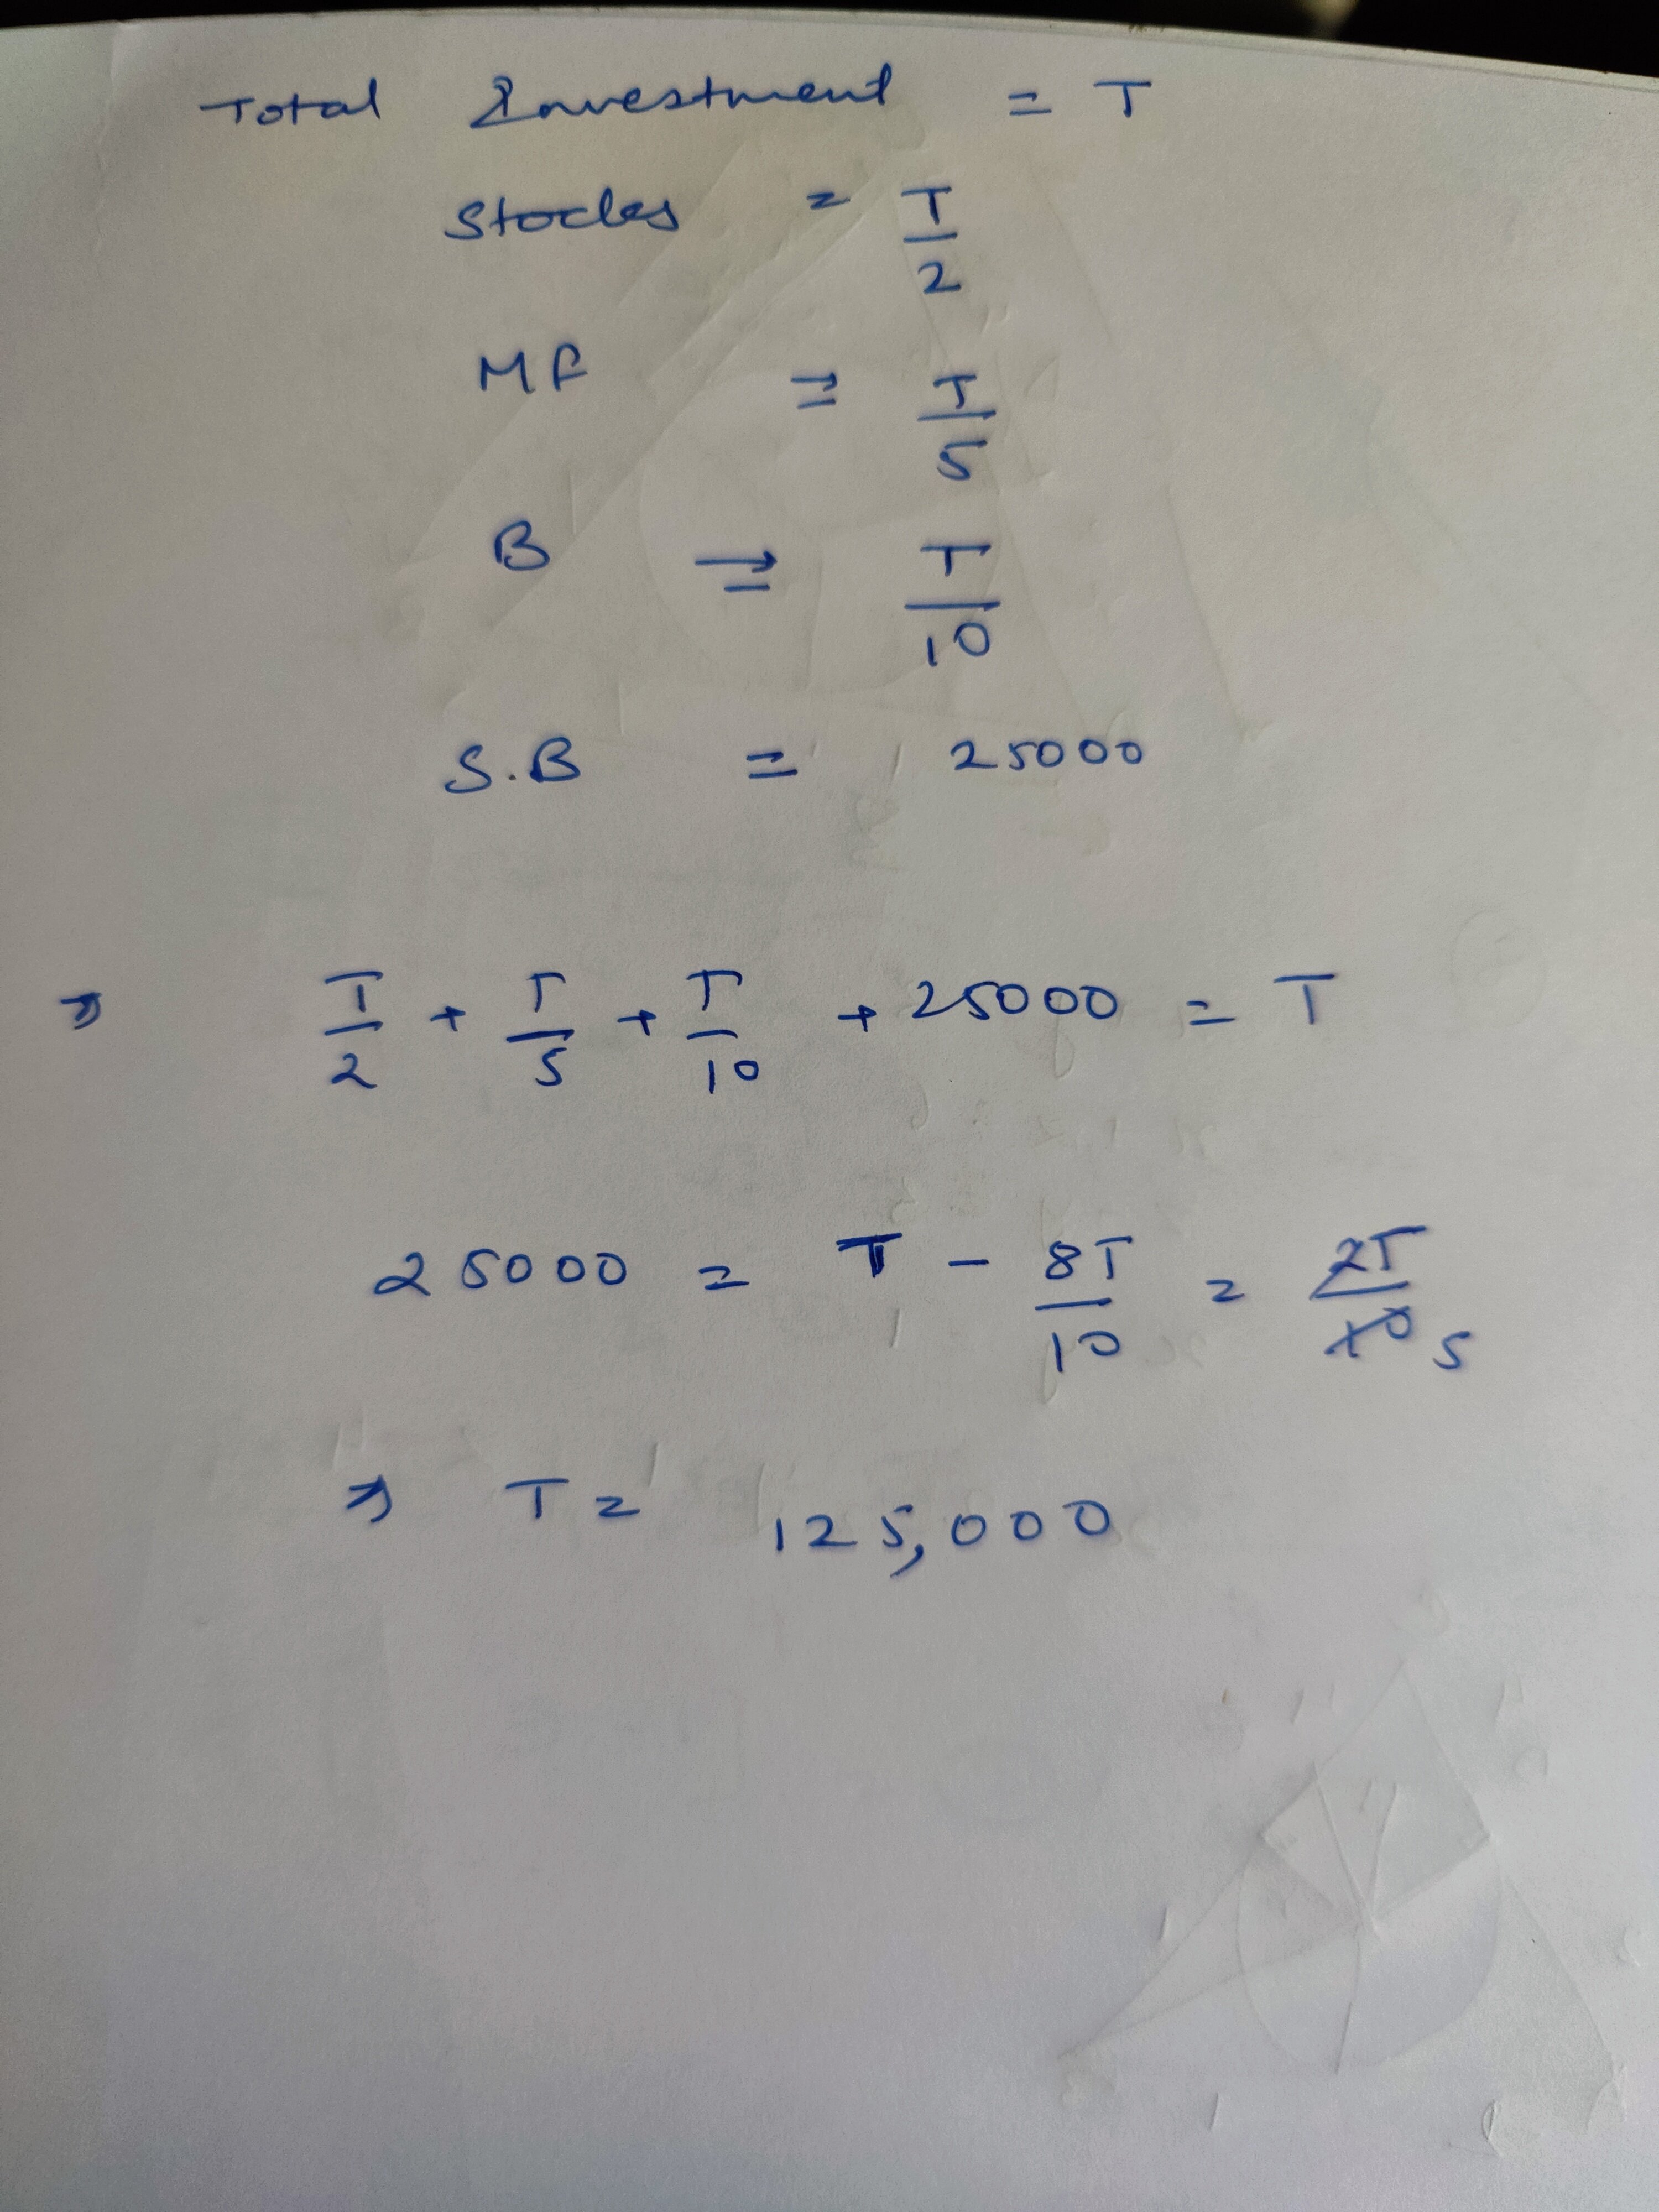 Total Investment = T
Stocks = T/2
MF = T/5
B = T/10
S.B = 25000
⇒ T/2 + T/5 + T/10 + 25000 = T
25000 = T - 8T/10 = 2T/10 5
⇒ T = 125,000